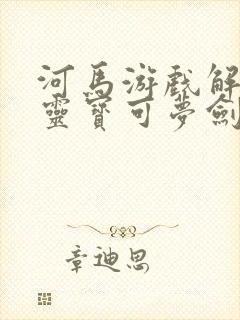 河马游戏解
靈寶可夢劍
章迪思